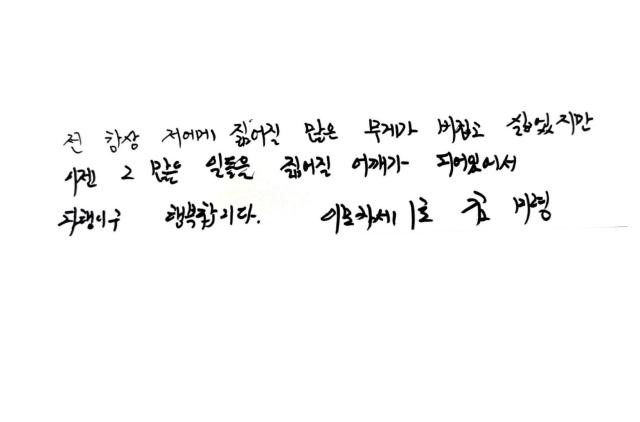 전 항상 저에게 짊어질 많은 무게가 버겁고 싫었지만
이젠 그 많은 일들을 짊어질 어깨가 되어있어서
다행이구 행복합니다.